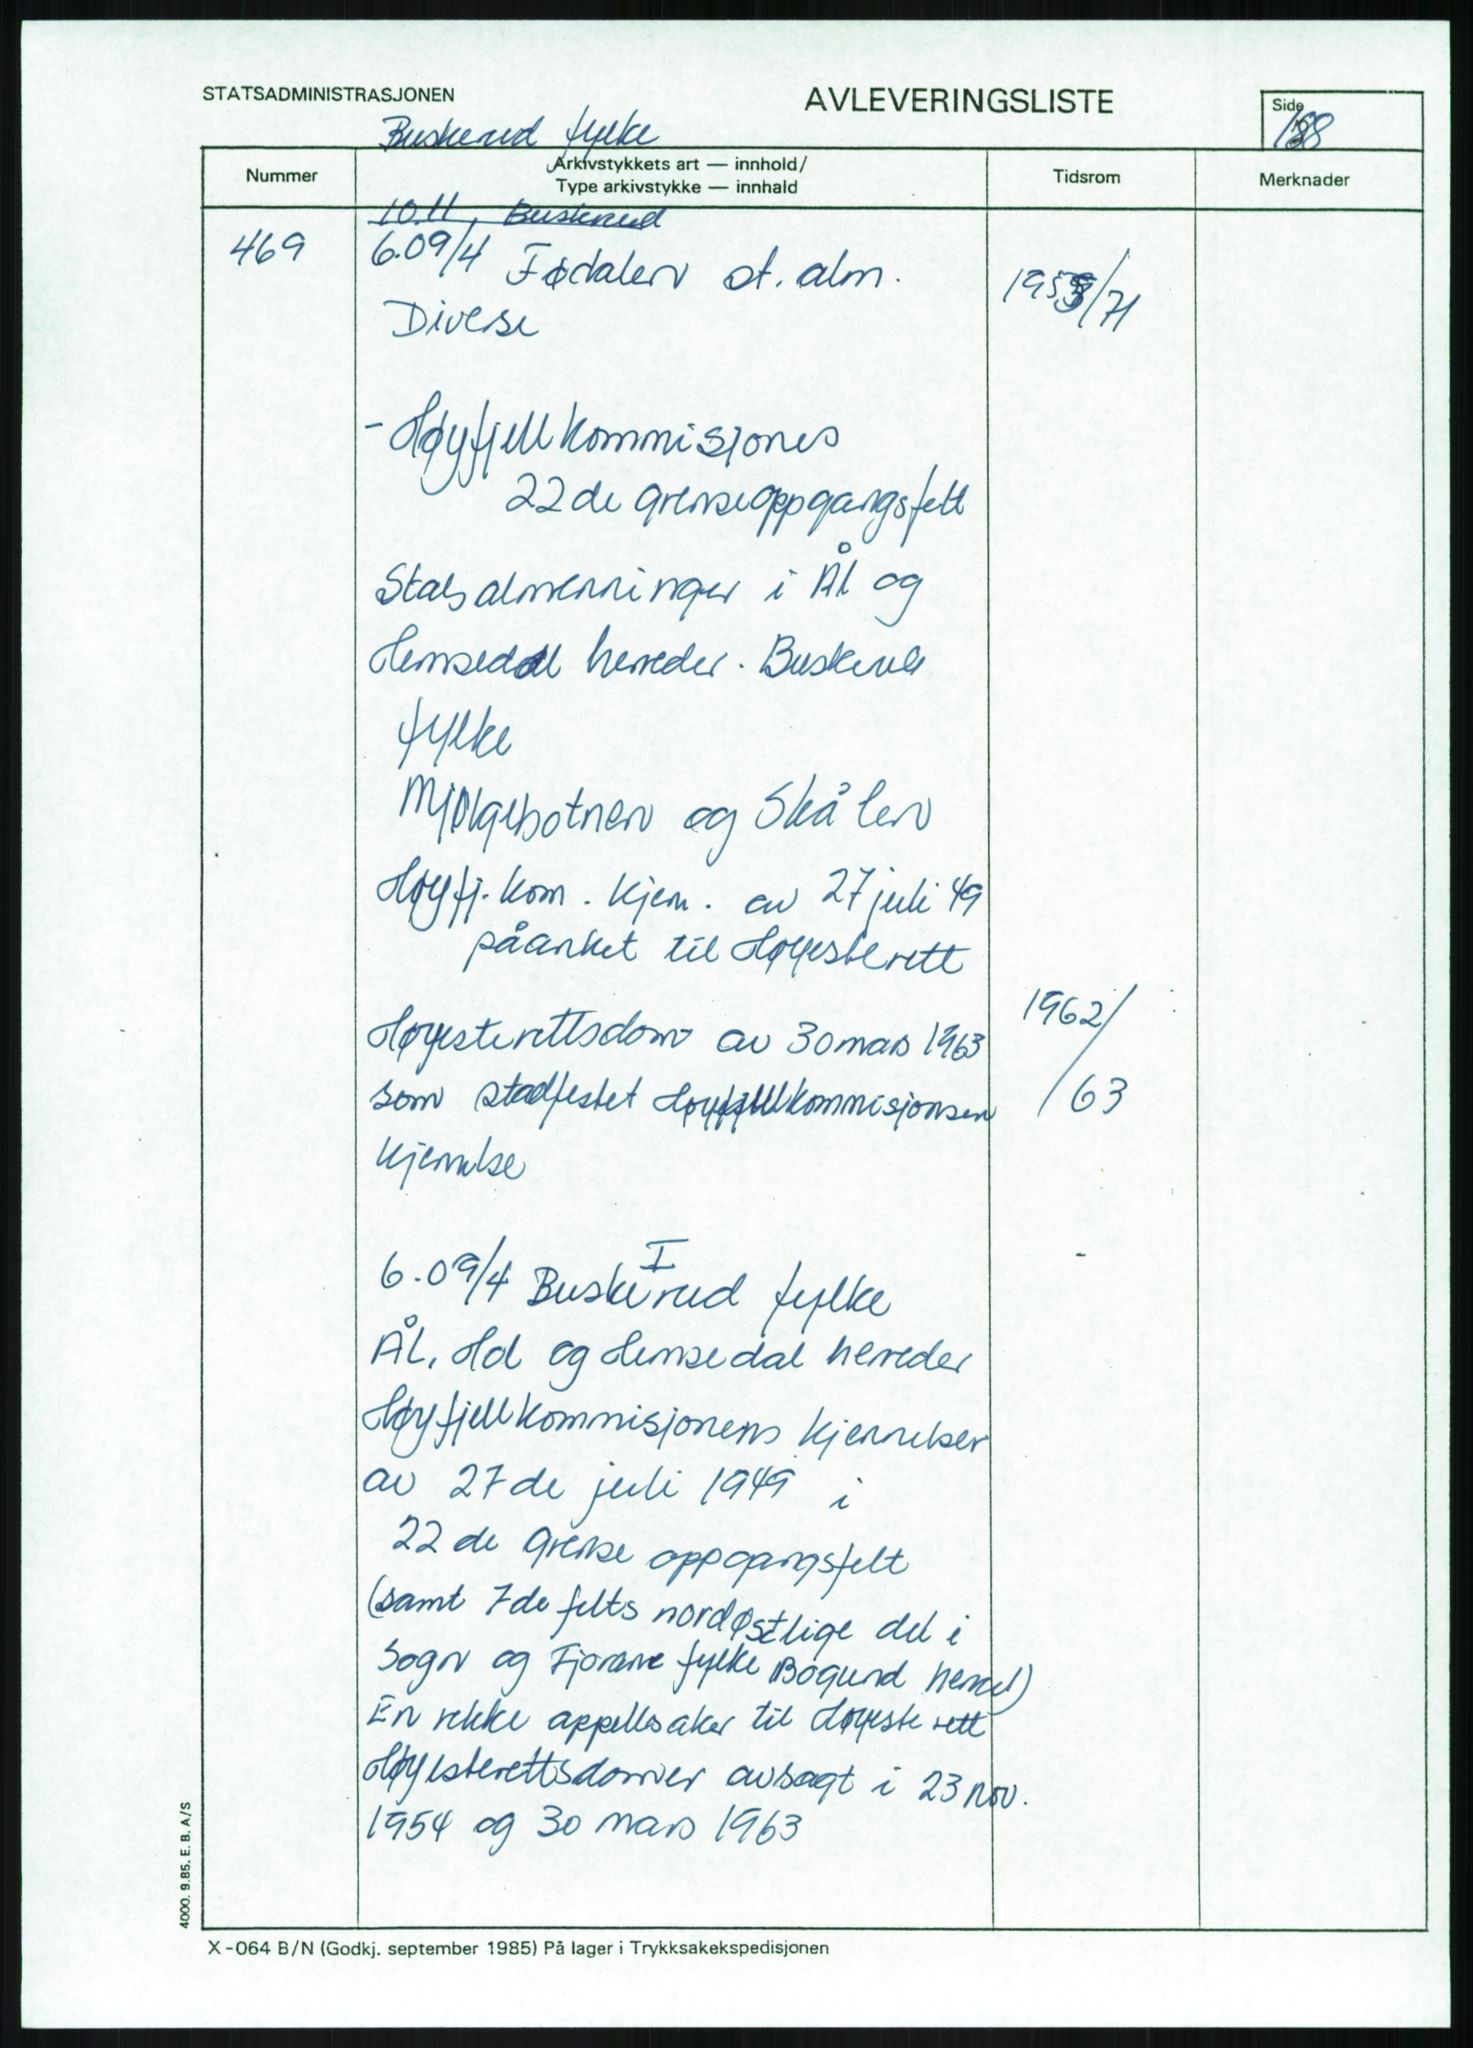 STATSADMINISTRASJONEN
AVLEVERINGSLISTE
Side
Buskerud fylke
Nummer
Arkivstykkets art — innhold/
Type arkivstykke — innhald
Tidsrom
Merknader
10.11, Buskerud
469
6.09/4 Fødalen st. alm.
/71
Diverse
- Høyfjellkommisjones
22de grenseoppgangsfelt
Statsalmenninger i Ål og
Hemsedal herreder. Buskerud
fylke
Mjølgebotnen og Skålen
Høyfj. kom. kjen. av 27 juli 49
påanket til Høyesterett
1962/
Høyesterettsdom av 30 mars 1963
som stadfestet Høyfjellkommisjonsen
/63
kjennelse
I
6.09/4 Buskerud fylke
Ål, Hol og Hemsedal herreder
Høyfjellkommisjonens kjennelser
av 27de juli 1949 i
22de grense oppgangsfelt
(samt 7de felts nordøstlige del i
Sogn og Fjorane fylke Bogund herred)
En rekke appellsaker til Høyesterett
Høyesterettsdommer avsagt i 23 nov.
1954 og 30 mars 1963
4000. 9.85. E. B. A/S
X-064 B/N (Godkj. september 1985) På lager i Trykksakekspedisjonen